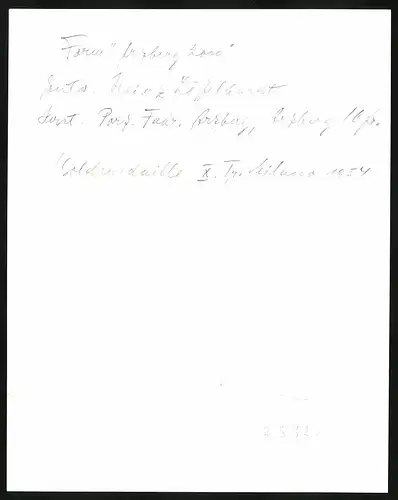 Form "Arzberg 2000"
Entw. Heinz Löffelhardt
Herst. Porz. Fabr. Arzberg, Arzberg / Ofr.
Goldmedaille X. Tr. Milano 1954